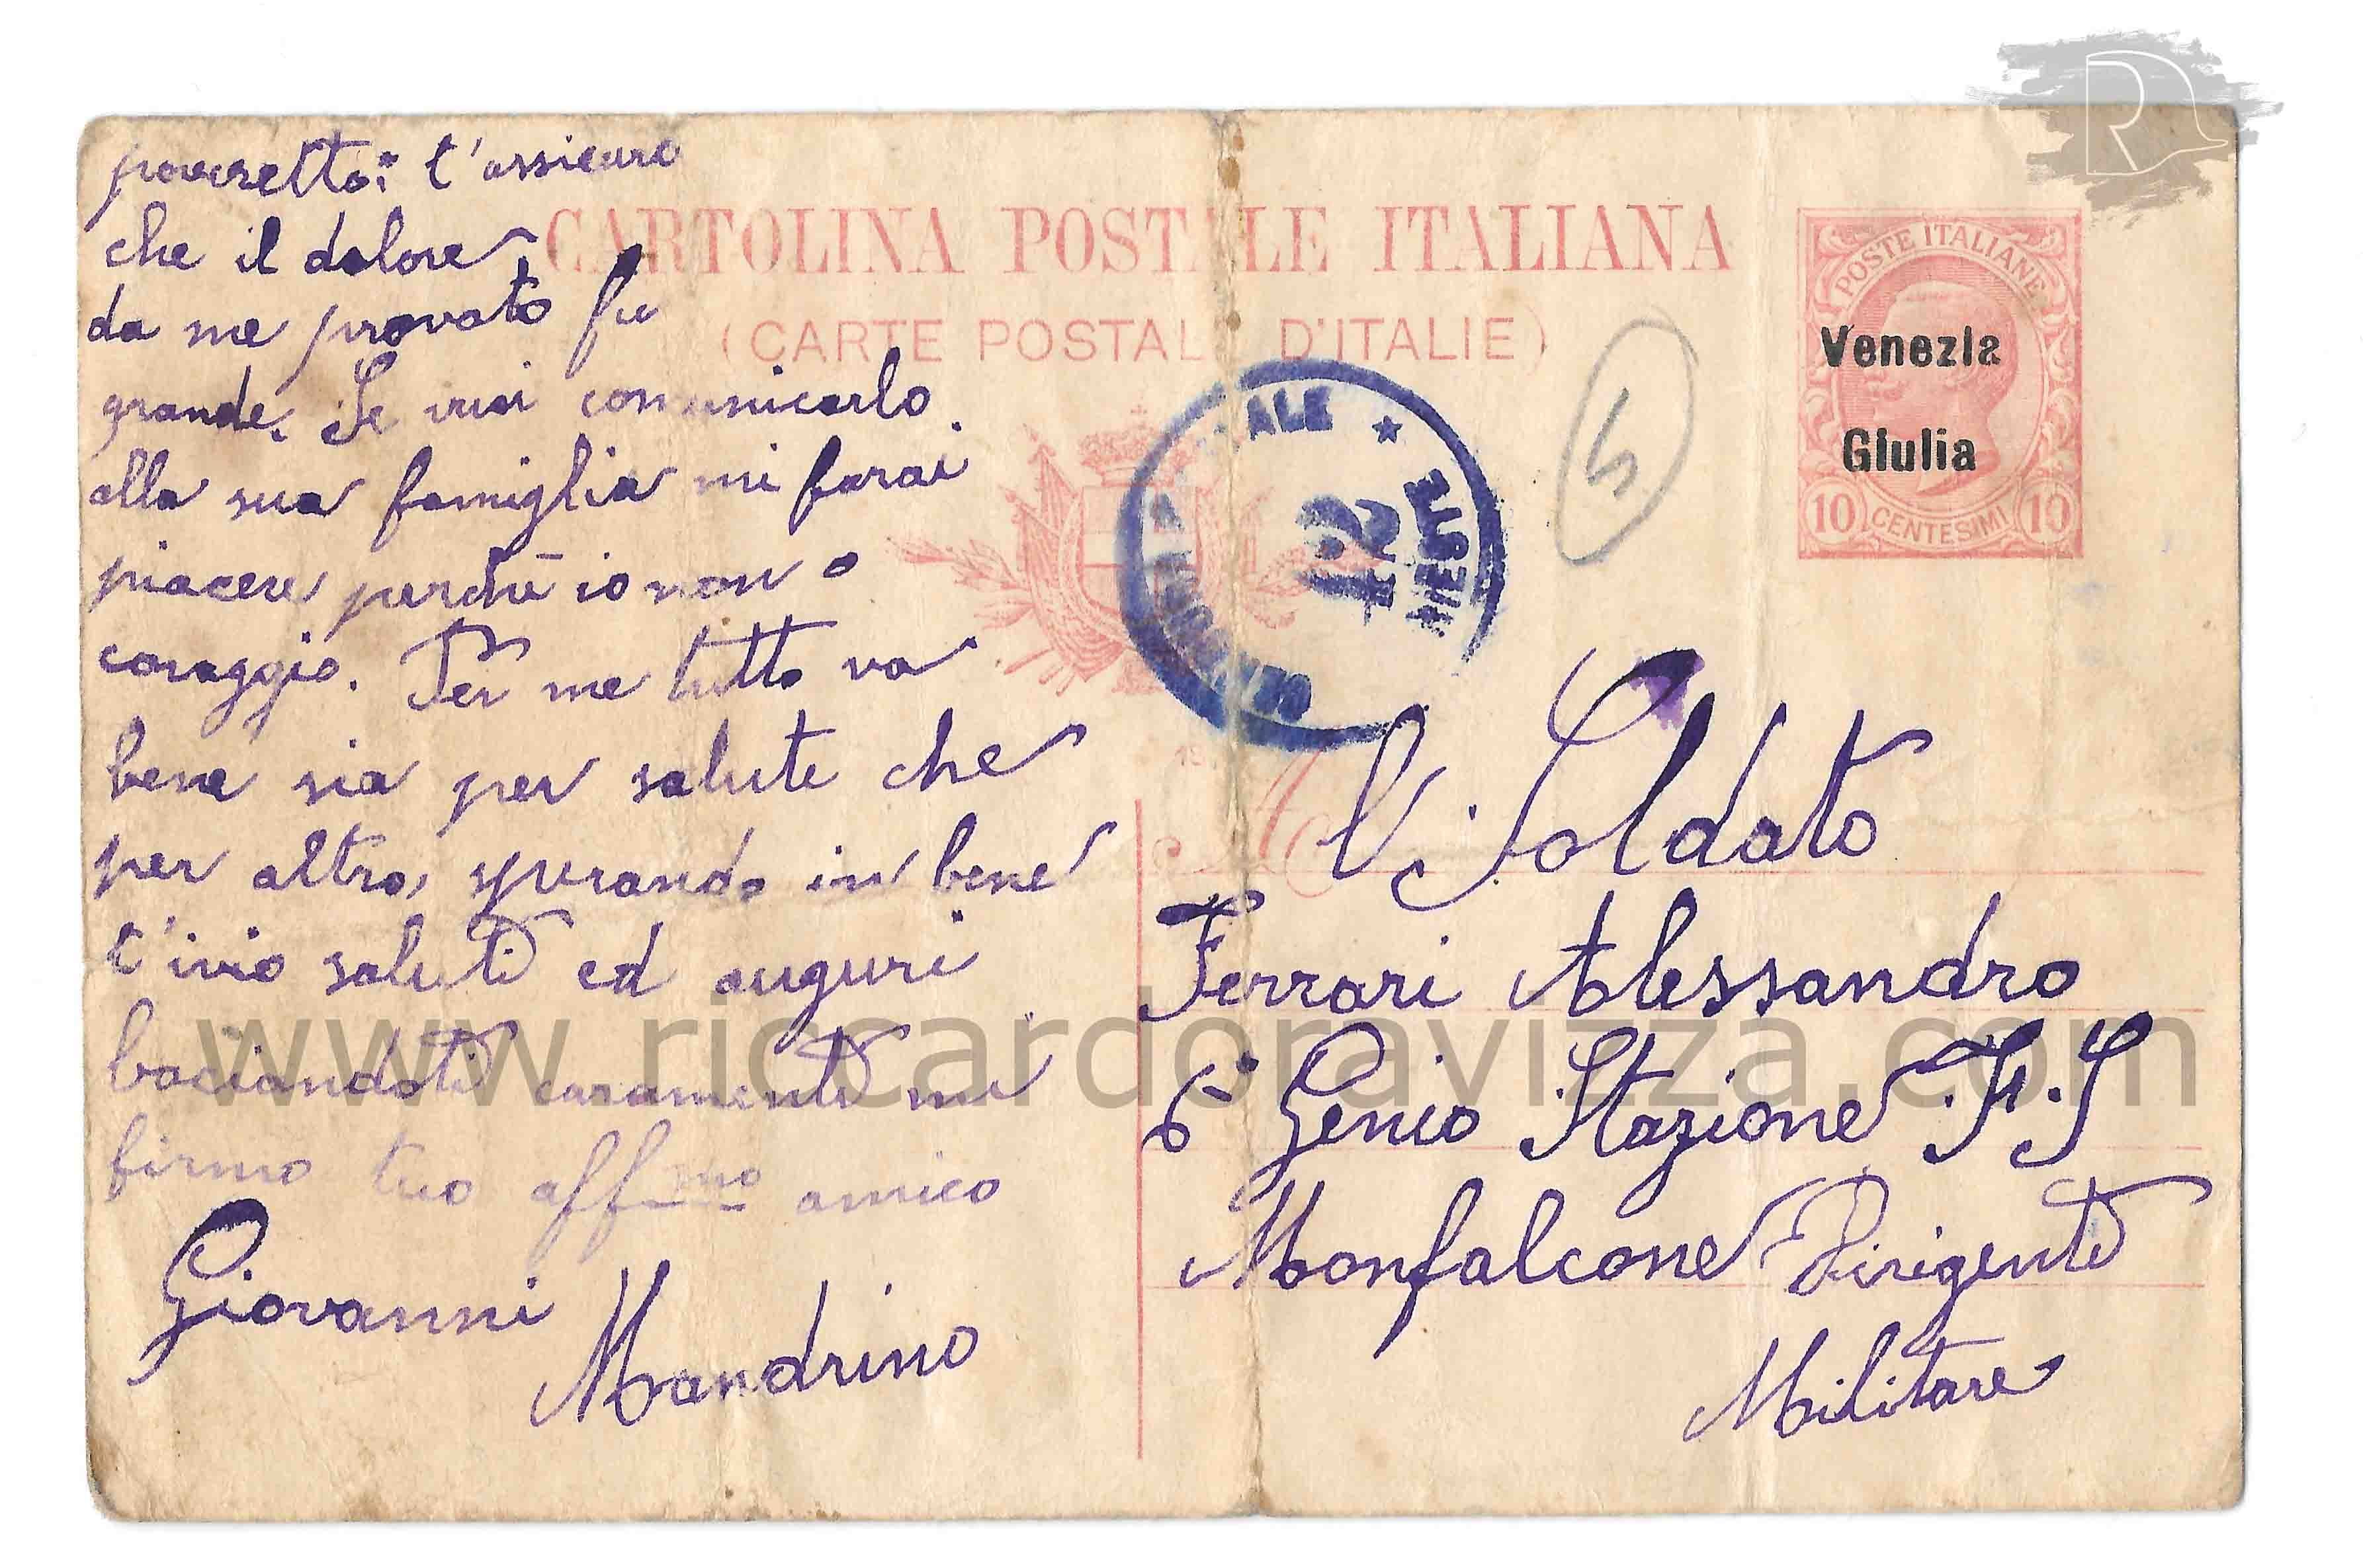 poveretto: t'assicuro
che il dolore
da me provato fu
grande. Se vuoi comunicarlo
alla sua famiglia mi farai
piacere perchè io non o
coraggio. Per me tutto va
bene sia per salute che
per altro, sperando in bene
t'ivio saluti ed auguri
baciandoti caramente mi
firmo tuo aff.mo amico
Giovanni
Mandrino
CARTOLINA POSTALE ITALIANA
(CARTE POSTALE D'ITALIE)
POSTE ITALIANE
Venezia
Giulia
10 CENTESIMI 10
5
TRIESTE
12
Soldato
Ferrari Alessandro
6° Genio Stazione F.S
Monfalcone Dirigente
Militare
www.riccardoravizza.com
R